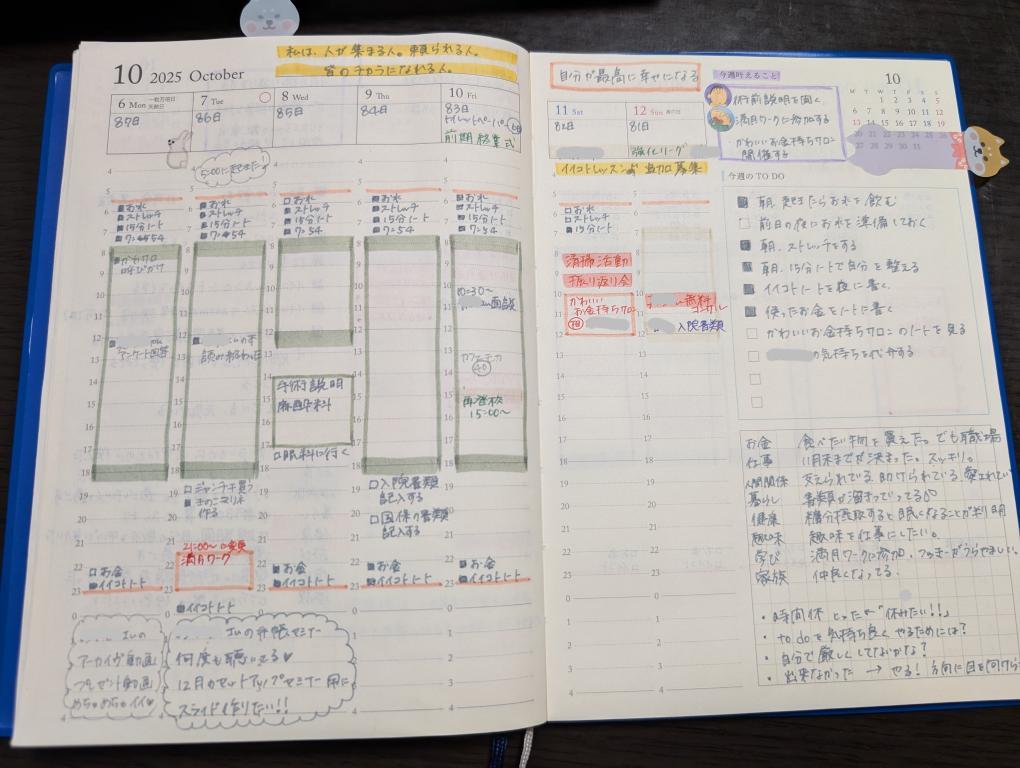 私は、人が集まる人。頼られる人。
皆のチカラになれる人。
10 2025 October
6 Mon
87日
7 Tue
86日
8 Wed
85日
9 Thu
84日
10 Fri
83日
トイレットペーパー
前期終業式
5:00に起きた!
お水
ストレッチ
15分ノート
7:54
お水
ストレッチ
15分ノート
7:54
お水
ストレッチ
15分ノート
7:54
お水
ストレッチ
15分ノート
7:54
お水
ストレッチ
15分ノート
7:54
呼びかけ
アンケート回答
の本
読み終わった
手術説明
麻酔科
眼科に行く
10:30~
面談
40
再登校
15:00~
ジャンプ買う
きのこマリネ
作る
入院書類
記入する
国保の書類
記入する
21:00~
満月ワーク
お金
イイコトノート
イイコトノート
お金
イイコトノート
お金
イイコトノート
お金
イイコトノート
アーカイブ動画
プレゼント動画
めちゃめちゃイイ
手帳セミナー
何度も聴いてる♥
12月のセットアップセミナー用に
スライド作りたい!!
自分が最高に幸せになる
11 Sat
82日
12 Sun
81日
強化リーグ
イイコトレッスン 追加募集
お水
ストレッチ
15分ノート
清掃活動
振り返り会
かわいい
お金持ちサロン
無料
コンサル
入院書類
今週叶えること
術前説明を聞く
満月ワークに参加する
かわいいお金持ちサロン
開催する
10
M T W T F S S
1 2 3 4 5
6 7 8 9 10 11 12
13 14 15 16 17 18 19
20 21 22 23 24 25 26
27 28 29 30 31
今週の TO DO
朝、起きたらお水を飲む
前日の夜にお水を準備しておく
朝、ストレッチをする
朝、15分ノートで自分を整える
イイコトノートを夜に書く
使ったお金をノートに書く
かわいいお金持ちサロンのノートを見る
の気持ちを代弁する
お金 食べたい物を買えた。でも職場
仕事 11月末までが決まった。スッキリ。
人間関係 支えられてる、助けられてる、愛されてい
暮らし 書類が溜まっていってる
健康 糖分摂取すると眠くなることが判明
趣味 趣味を仕事にしたい。
学び 満月ワークに参加。
家族 仲良くなってる。
・時間休 とったが「休みたい!!」
・to doを気持ち良くやるためには?
・自分で厳しくしてないかな?
・出来なかった → やる! 方向に目を向けら